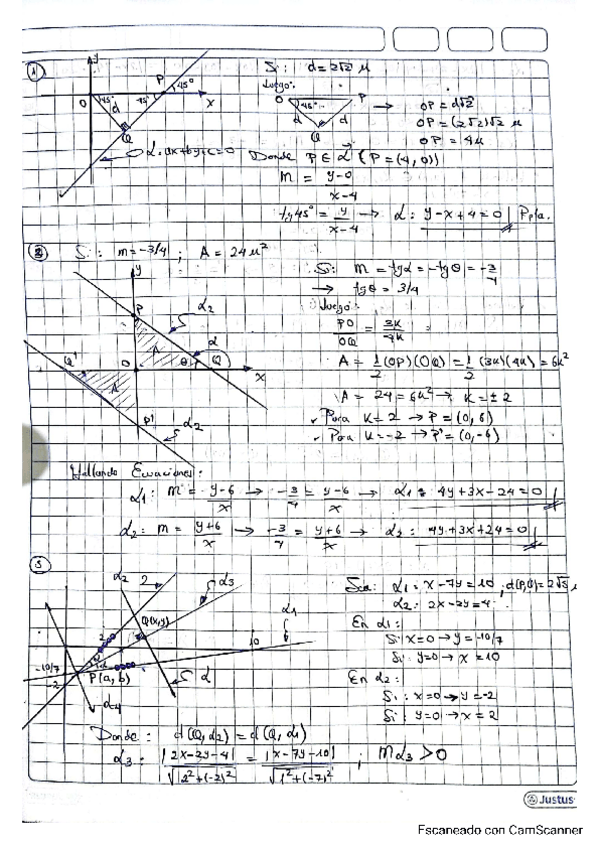 ① Si: d = 2√2 u
Luego:
y
O 45° 45° P 45° x
d
Q
L: ax+by+c=0
O 45° P
d d
Q
→ OP = d√2
OP = (2√2)√2 u
OP = 4u
Donde P ∈ L ( P = (4, 0))
m = y-0 / x-4
tg45° = y / x-4 → L: y-x+4=0 | Ppta.
② Si: m = -3/4 ; A = 24u²
y
P
L2
A
α
Q' O θ Q x
A
P'
L2
Si: m = tgα = -tgθ = -3/4
→ tgθ = 3/4
Luego:
PO / OQ = 3K / 4K
A = 1/2 (OP)(OQ) = 1/2 (3K)(4K) = 6K²
A = 24 = 6K² → K = ±2
Para K = 2 → P = (0, 6)
Para K = -2 → P' = (0, -6)
Hallando Ecuaciones:
L1: m = y-6 / x → -3/4 = y-6 / x → L1: 4y+3x-24=0
L2: m = y+6 / x → -3/4 = y+6 / x → L2: 4y+3x+24=0
L2 2 L3
Q(x,y) L1
2 10
-10/7
-2 P(a, b) L
L4
Sea: L1: x-7y=10 ; d(P,Q)=2√5 u
L2: 2x-2y=4
En L1:
Si x=0 → y=-10/7
Si: y=0 → x=10
En L2:
Si: x=0 → y=-2
Si: y=0 → x=2
Donde: d(Q, L2) = d(Q, L1)
L3: |2x-2y-4| / √2²+(-2)² = |x-7y-10| / √1²+(-7)² ; mL3 > 0
Justus
Escaneado con CamScanner